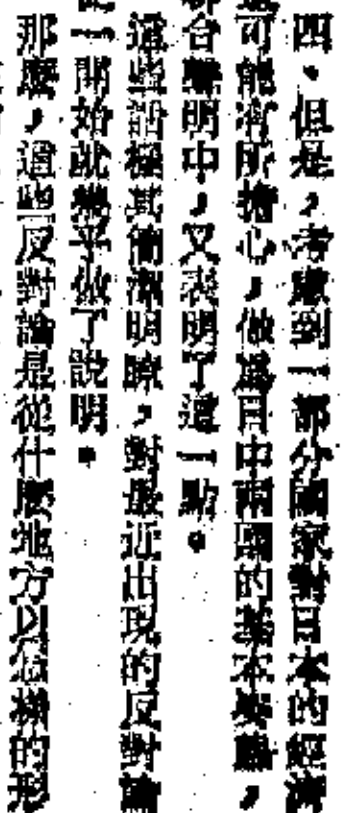 四、但是，考慮到一部分國家對日本的經濟
可能有所擔心，做爲日中兩國的基本態度，
合聲明中，又表明了這一點。
這些話極其簡潔明瞭，對最近出現的反對論
一開始就幾乎做了說明。
那麽，這些反對論是從什麽地方以怎樣的形